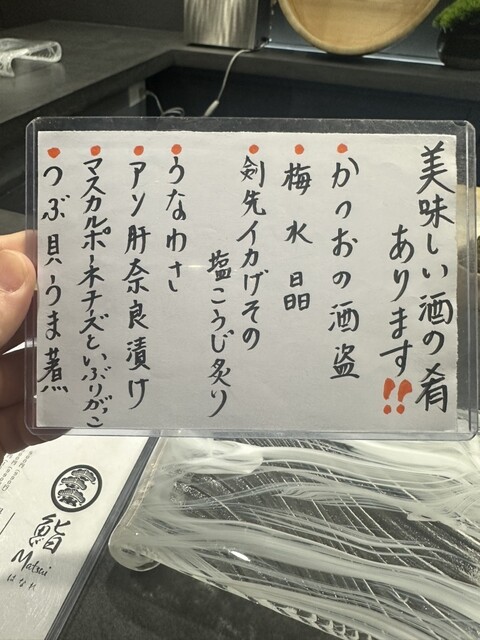 美味しい酒の肴
あります!!
かつおの酒盗
梅水晶
剣先イカげその
塩こうじ炙り
うなわさ
アン肝奈良漬け
マスカルポーネチーズといぶりがっこ
つぶ貝うま煮
鮨
Matsui
はなれ